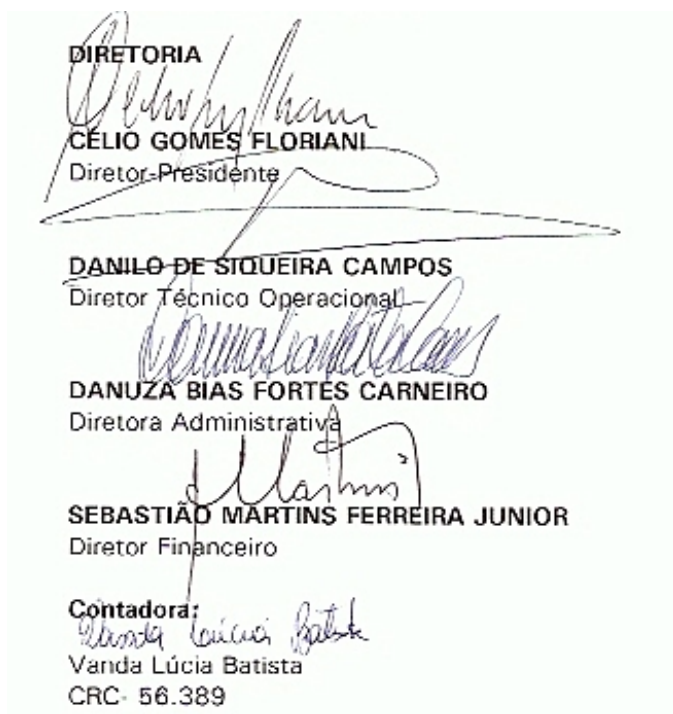 DIRETORIA
CÉLIO GOMES FLORIANI
Diretor-Presidente
DANILO DE SIQUEIRA CAMPOS
Diretor Técnico Operacional
DANUZA BIAS FORTES CARNEIRO
Diretora Administrativa
Martins
SEBASTIÃO MARTINS FERREIRA JUNIOR
Diretor Financeiro
Contadora:
Vanda Lúcia Batista
Vanda Lúcia Batista
CRC- 56.389